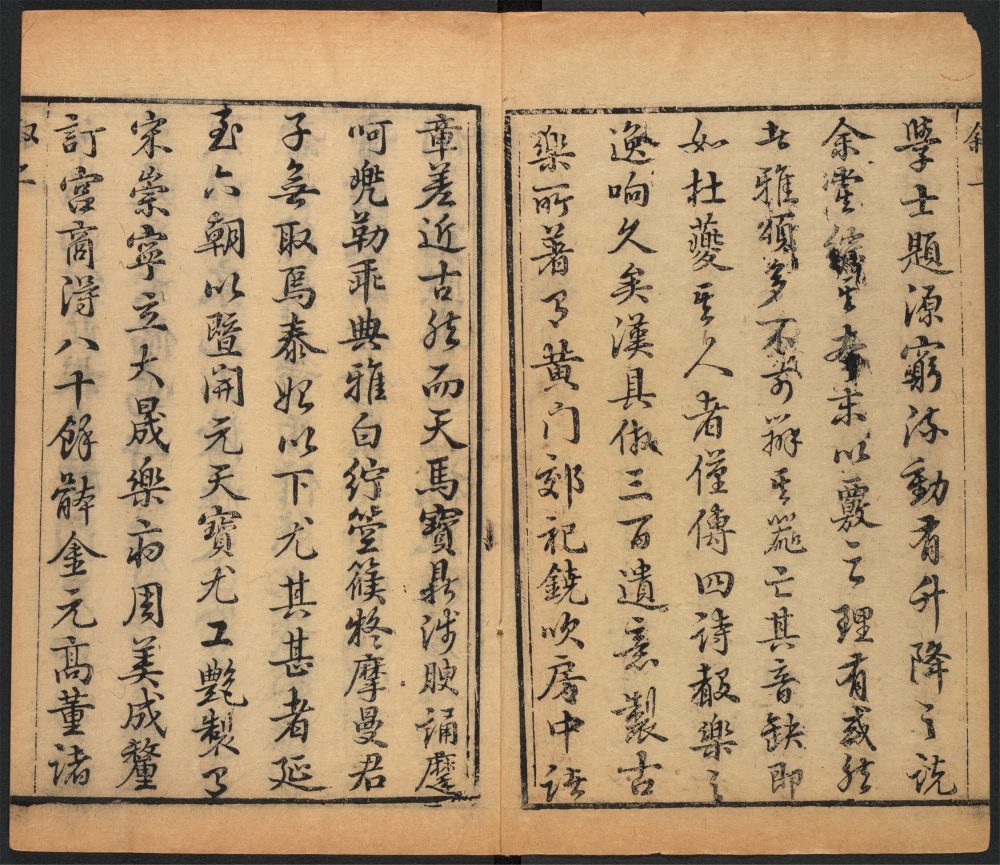 學士題源窮流動有升降之說
余嘗 生 末以覈之理有或然
者雅頌多不可辨其器亡其音缺即
如杜夔其人者僅傳四詩聲樂之
逸响久矣漢具倣三百遺意製古
樂所著有黃门郊祀鐃吹房中語
章差近古然而天馬寶鼎涉腴誦摩
呵兠勒乖典雅白紵箜篌婺摩曼君
子無取焉泰始以下尤其甚者延
至六朝以暨開元天寶尤工艷製乃
宋崇寧立大晟樂府周美成釐
訂宮商得八十餘體金元高董諸
叙一